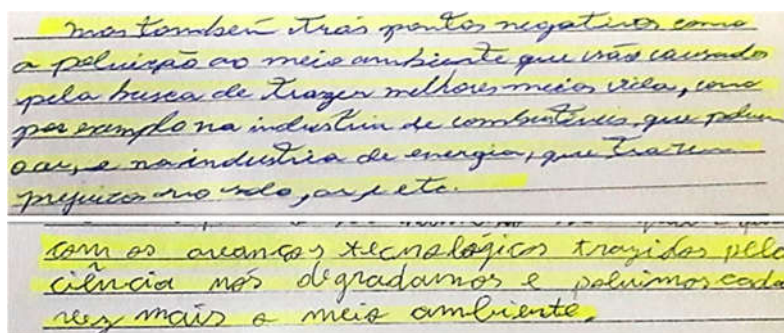 mas também trás pontos negativos como
a poluição ao meio ambiente que são causados
pela busca de trazer melhores meios vida, como
por exemplo na industria de combustíveis, que polum
o ar, e na industria de energia, que trazem
prejuizos no solo, ar, e etc.
com os avanços tecnológicos trazidos pela
ciência nós degradamos e poluimos cada
vez mais o meio ambiente.